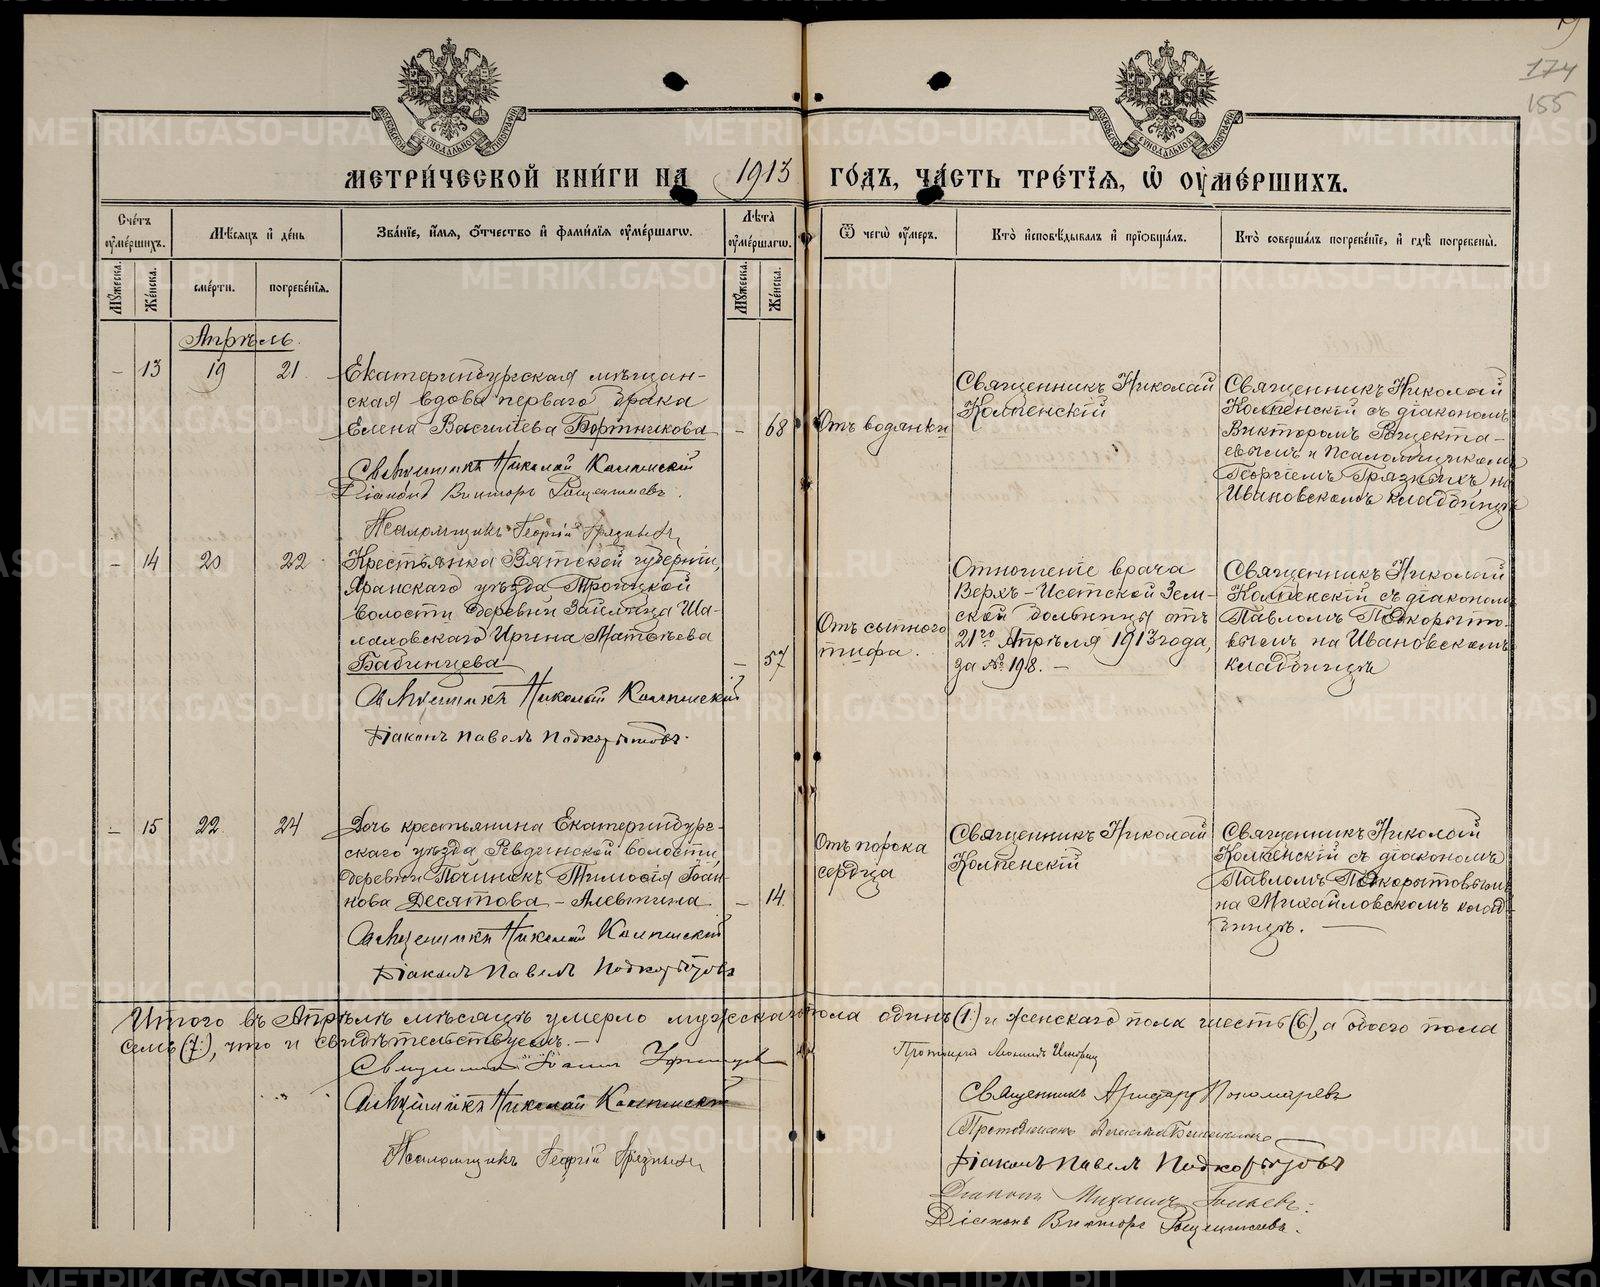 174
155
МЕТРИ́ЧЕСКОЙ КНИ́ГИ НА 1913 ГО́ДЪ, ЧА́СТЬ ТРЕ́ТІѦ, Ѡ҆ ОУМЕ́РШИХЪ.
Сче́тъ оумéршихъ.
Мѣ́сяцъ и҆ де́нь
Зва́нїе, и҆́мя, ѻ҆́тчество и҆ фами́лїя оумéршагѡ.
Лѣ́та оумéршагѡ.
Ѿ чегѡ̀ оу́меръ.
Кто̀ и҆сповѣ́дывалъ и҆ прїѡбща́лъ.
Кто̀ соверша́лъ погребе́нїе, и҆ гдѣ̀ погребены̀.
Мꙋ́жеска.
Же́нска.
сме́рти.
погребе́нїя.
Мꙋ́жеска.
Же́нска.
Апрѣль.
– 13 19 21
Екатеринбургская мѣщан-
ская вдова перваго брака
Елена Васильева Бортникова – 68
Священникъ Николай Колпенскій
Діаконъ Викторъ
Псаломщикъ Георгій Грязныхъ
Отъ водянки
Священникъ Николай
Колпенскій
Священникъ Николай
Колпенскій съ діакономъ
Викторомъ
и Псаломщикомъ
Георгіемъ Грязныхъ на
Ивановскомъ кладбищѣ
– 14 20 22
Крестьянка Вятской губерніи,
Яранскаго уѣзда Троицкой
волости деревни Займища Ша-
малаовскаго Ирина Матвѣева
Бабинцева – 57
Священникъ Николай Колпенскій
Діаконъ Павелъ Подкорытовъ.
Отъ сыпного
тифа.
Отношеніе врача
Верхъ-Исетской Зем-
ской больницы отъ
21го Апрѣля 1913 года,
за № 198. –
Священникъ Николай
Колпенскій съ діакономъ
Павломъ Подкорыто-
вымъ на Ивановскомъ
кладбищѣ
– 15 22 24
Дочь крестьянина Екатеринбург-
скаго уѣзда, Ревдинской волости,
деревни Починокъ Тимофея Іоан-
нова Десятова – Алевтина – 14
Священникъ Николай Колпенскій
Діаконъ Павелъ Подкорытовъ
Отъ порока
сердца
Священникъ Николай
Колпенскій
Священникъ Николай
Колпенскій съ діакономъ
Павломъ Подкорытовымъ
на Михайловскомъ клад-
бищѣ.
Итого въ Апрѣлѣ мѣсяцѣ умерло мужскаго пола одинъ (1) и женскаго пола шесть (6), а обоего пола
семь (7), что и свидѣтельствуемъ. –
Священникъ Іоаннъ
Священникъ Николай Колпенскій
Псаломщикъ Георгій Грязныхъ
Протоіерей
Священникъ Пономаревъ
Протодіаконъ
Діаконъ Павелъ Подкорытовъ
Діаконъ Михаилъ
Діаконъ Викторъ
METRIKI.GASO-URAL.RU